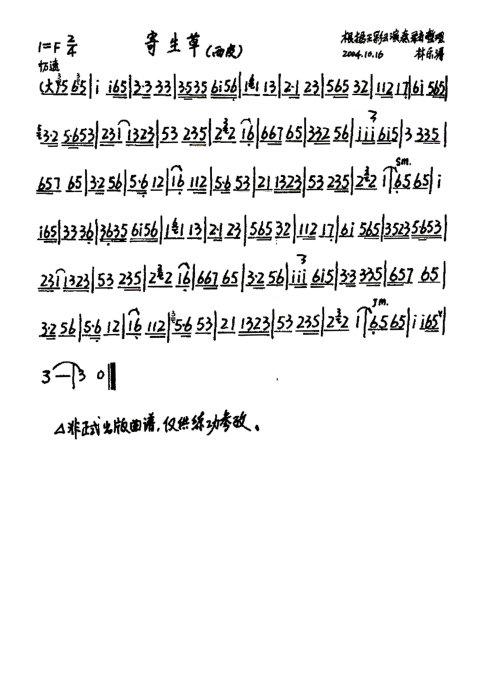 1=F 2/4 寄生草(西皮) 根据王彩云演奏录音整理
忆速 2004.10.16 林乐湧
(大 5 65|i i65|3·3 33|3535 6i56|1 1 13|2·1 23|5 565 32|112 17|6i 565|
3·2 5·653|23i 1323|53 235|2 2 16|667 65|332 56|iii 6i5|3 335|
657 65|32 56|5·6 12|16 112|5·6 53|21 1323|53 235|2 2 i|6565|i
i65|33 36|3635 6i56|1 1 13|2·1 23|565 32|112 17|6i 565|3523 5653|
23i 1323|53 235|2 2 16|667 65|3·2 56|iii 6i5|3·3 335|657 65|
3·2 56|5·6 12|16 112|5·6 53|21 1323|53 235|2 2 i|6565|i i65|
3—|3 0‖
△非正式出版曲谱,仅供练功参改。